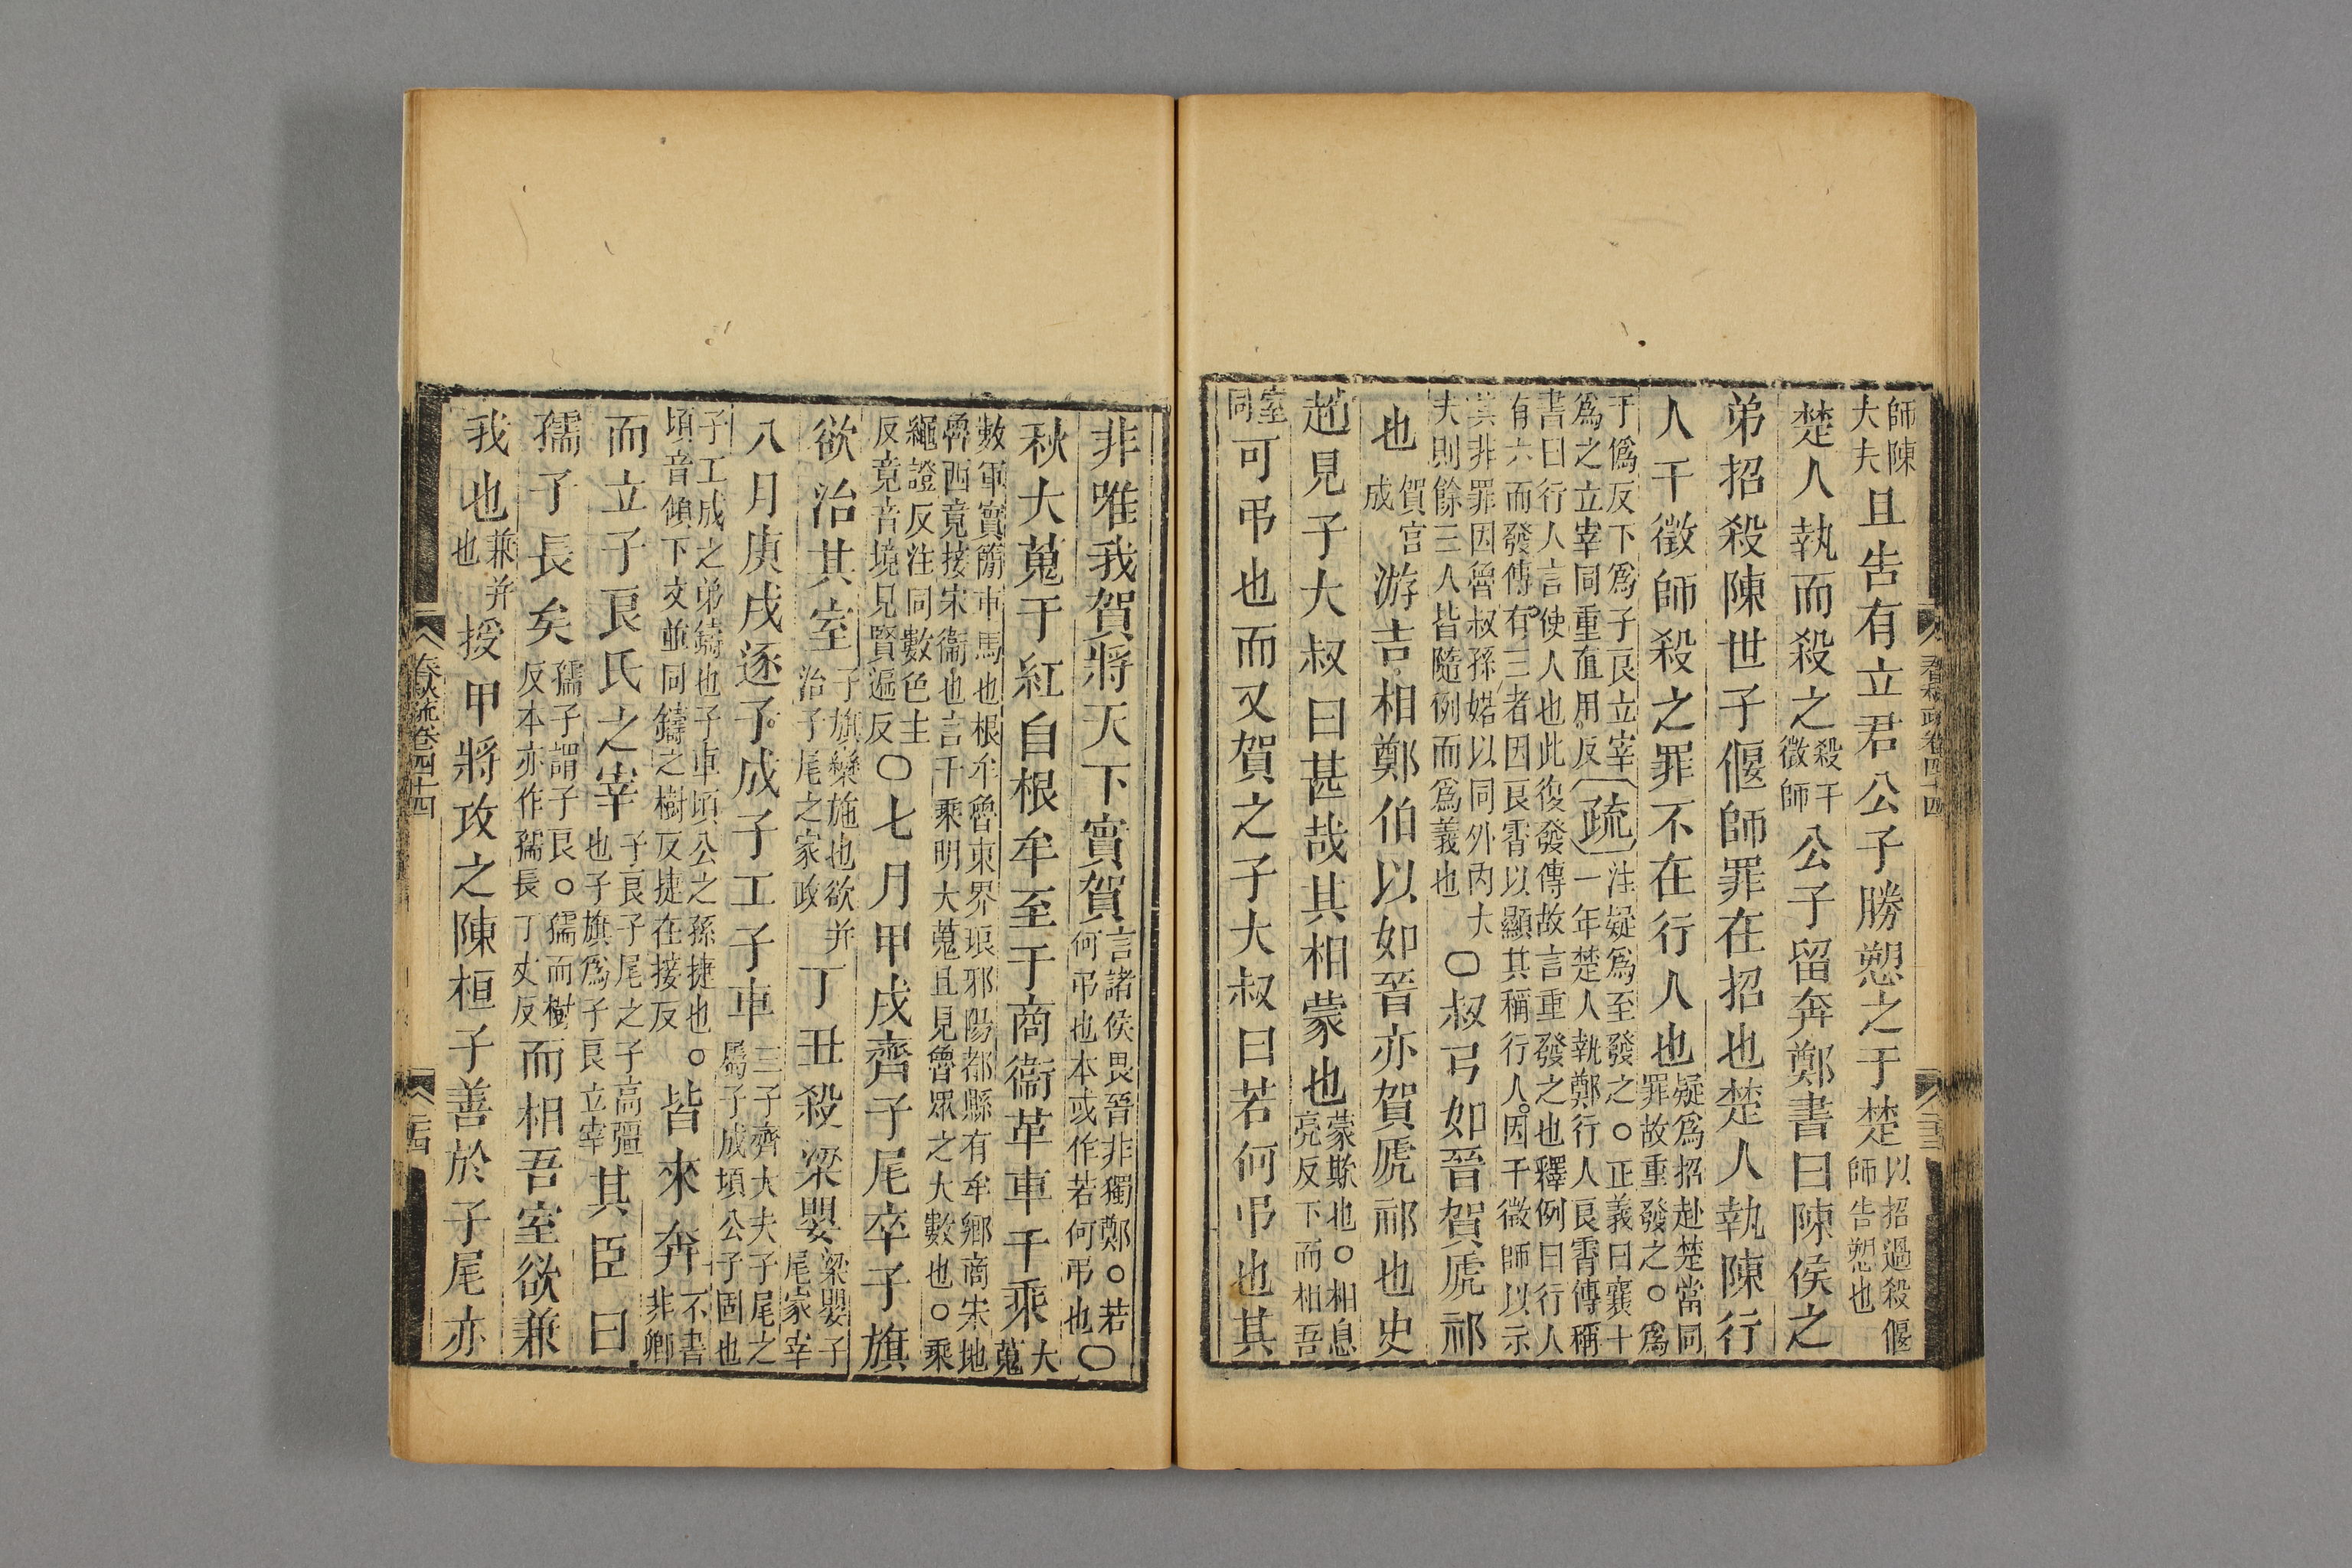 師陳大夫且告有立君公子勝愬之于楚以招過殺偃師告愬也
楚人執而殺之殺干徵師公子留奔鄭書曰陳侯之
弟招殺陳世子偃師罪在招也楚人執陳行
人干徵師殺之罪不在行人也疑爲招赴楚當同罪故重發之○爲
于僞反下爲子良立宰爲之立宰同重直用反疏注疑爲至發之○正義曰襄十一年楚人執鄭行人良霄傳稱
書曰行人言使人也此復發傳故言重發之也釋例曰行人有六而發傳有三者因良霄以顯其稱行人因干徵師以示
其非罪因魯叔孫婼以同外內大夫則餘三人皆隨例而爲義也○叔弓如晉賀虒祁
也賀宮成游吉相鄭伯以如晉亦賀虒祁也史
趙見子大叔曰甚哉其相蒙也蒙欺也○相息亮反下而相吾
室同可弔也而又賀之子大叔曰若何弔也其
春秋疏卷四十四
非唯我賀將天下實賀言諸侯畏晉非獨鄭○若何弔也本或作若何弔也○
秋大蒐于紅自根牟至于商衞革車千乘大蒐
數軍實簡車馬也根牟魯東界琅邪陽都縣有牟鄉商宋地魯西竟接宋衞也言千乘明大蒐且見魯眾之大數也○乘
繩證反注同數色主反竟音境見賢遍反○七月甲戌齊子尾卒子旗
欲治其室子旗欒施也欲并治子尾之家政丁丑殺梁嬰梁嬰子尾家宰
八月庚戌逐子成子工子車三子齊大夫子尾之屬子成頃公子固也
子工成之弟鑄也子車頃公之孫捷也○頃音傾下文並同鑄之樹反捷在接反皆來奔不書非卿
而立子良氏之宰子良子尾之子高彊也子旗爲子良立宰其臣曰
孺子長矣孺子謂子良○孺而樹反本亦作𥎟長丁丈反而相吾室欲兼
我也兼并也授甲將攻之陳桓子善於子尾亦
春秋疏卷四十四